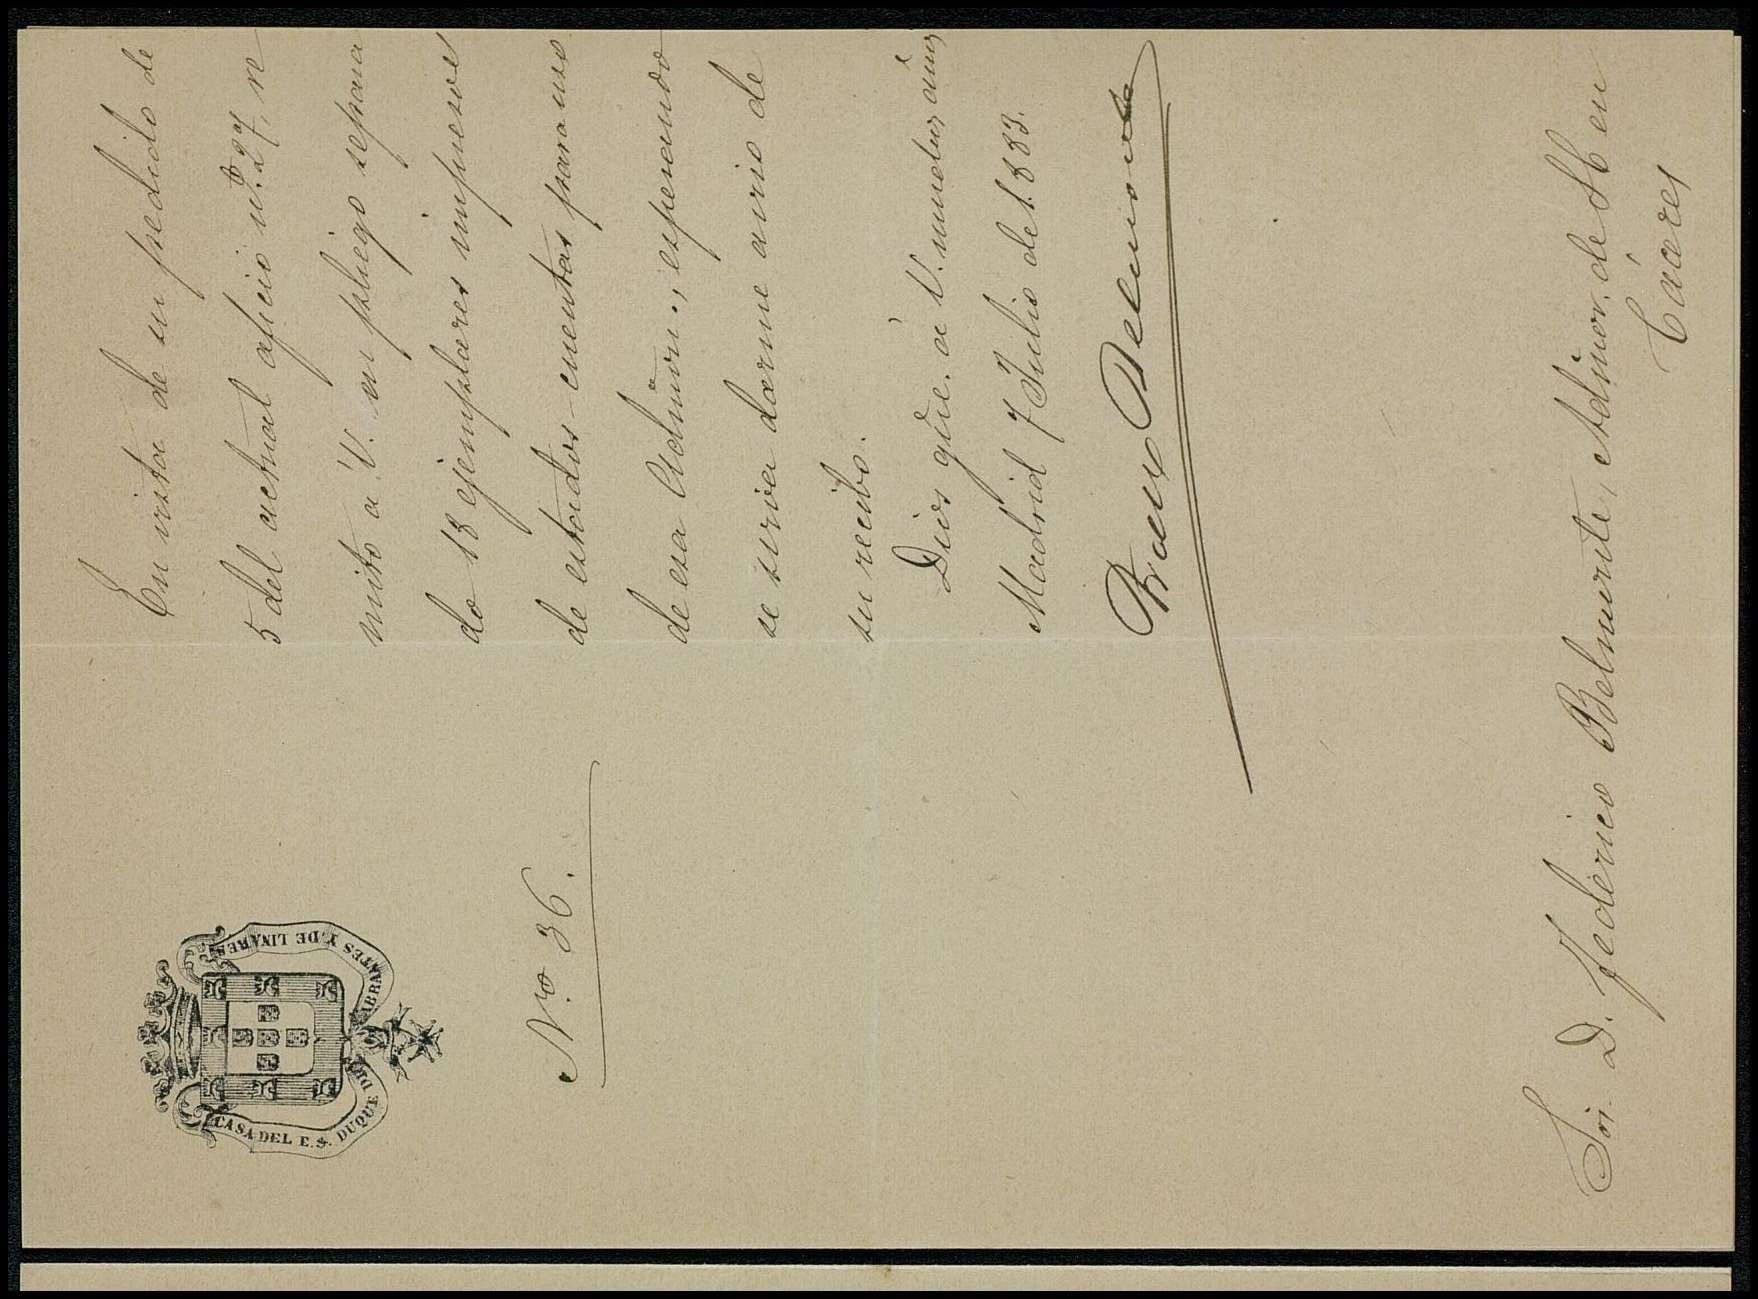 CASA DEL E.S. DUQUE DE ABRANTES Y DE LINARES
Nro. 36.
En vista de su pedido de
5 del actual oficio nº 27, re
mito a V. en pliego separa
do 18 ejemplares impresos
de estados-cuentas para uso
de esa Admon., esperando
se sirva darme aviso de
su recibo.
Dios gde. a V. muchos años
Madrid 7 Julio de 1.883.
Bano Belmonte
Sor. D. Federico Belmonte, Admor. de SE en
Cáceres